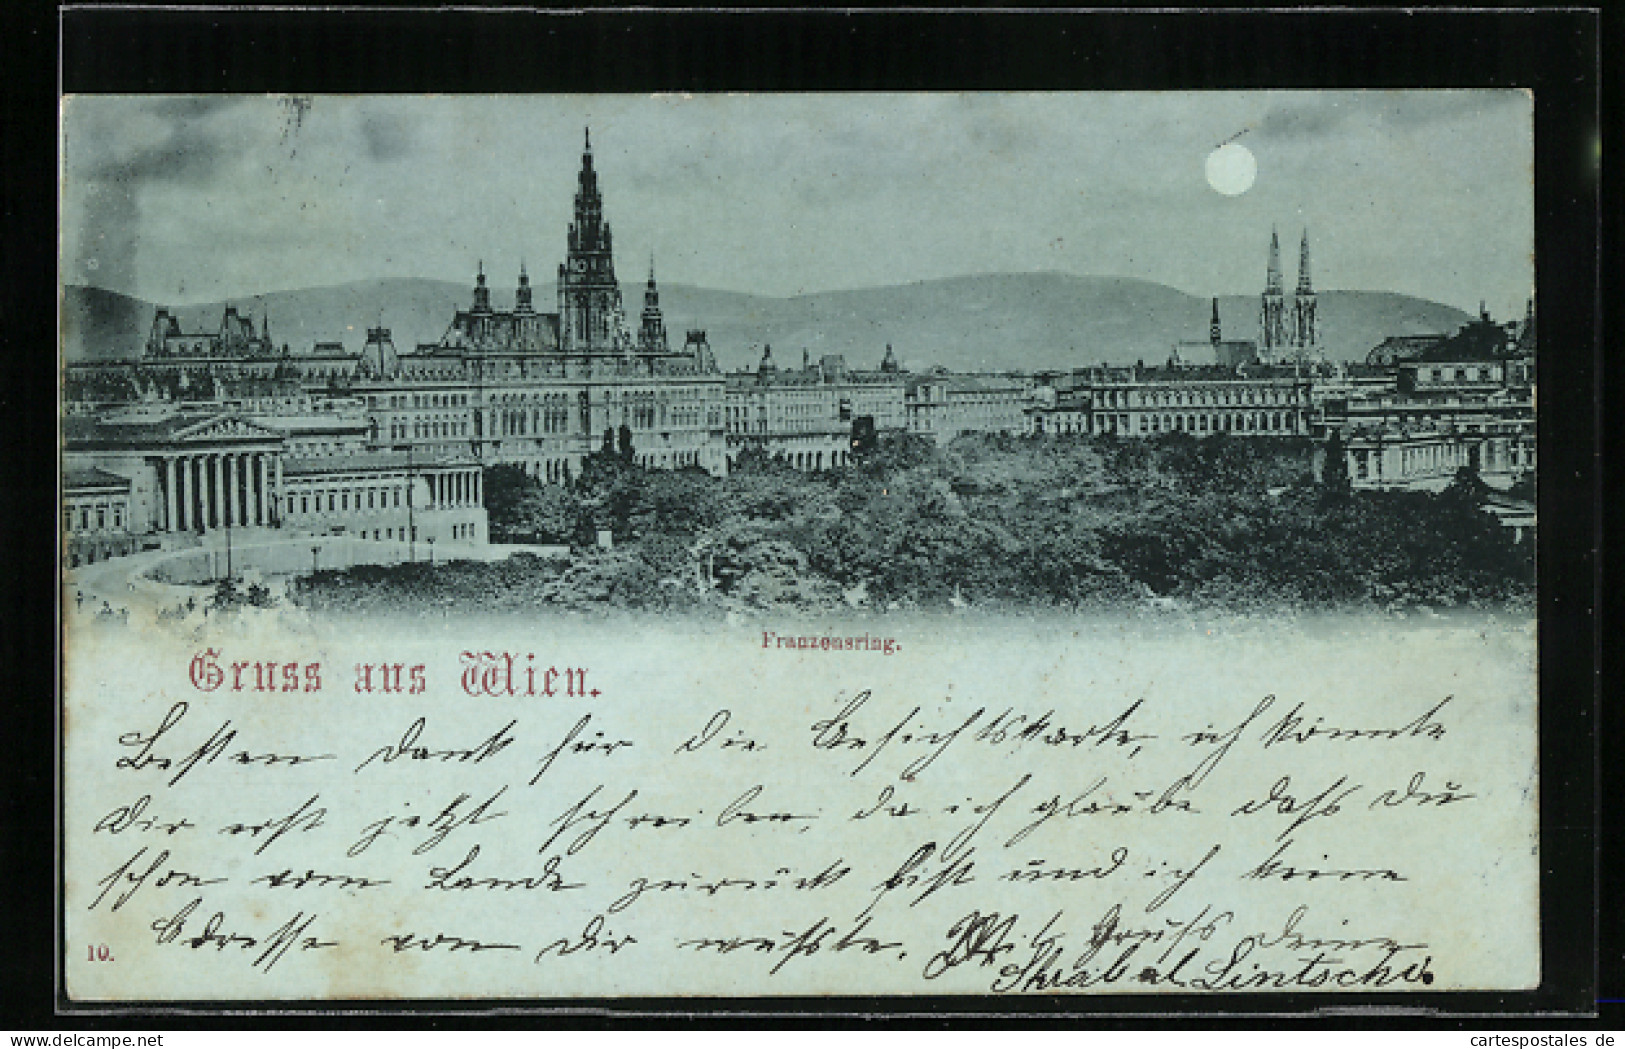 Franzensring.
Gruss aus Wien.
Besten Dank für die Ansichtskarte, ich könnte
Dir erst jetzt schreiben, da ich glaube daſs Du
schon vom Lande zurück bist und ich keine
Adresse von Dir wuſste. Mit Gruſs Deine
10.
Lintschi.
www.delcampe.net
cartespostales de